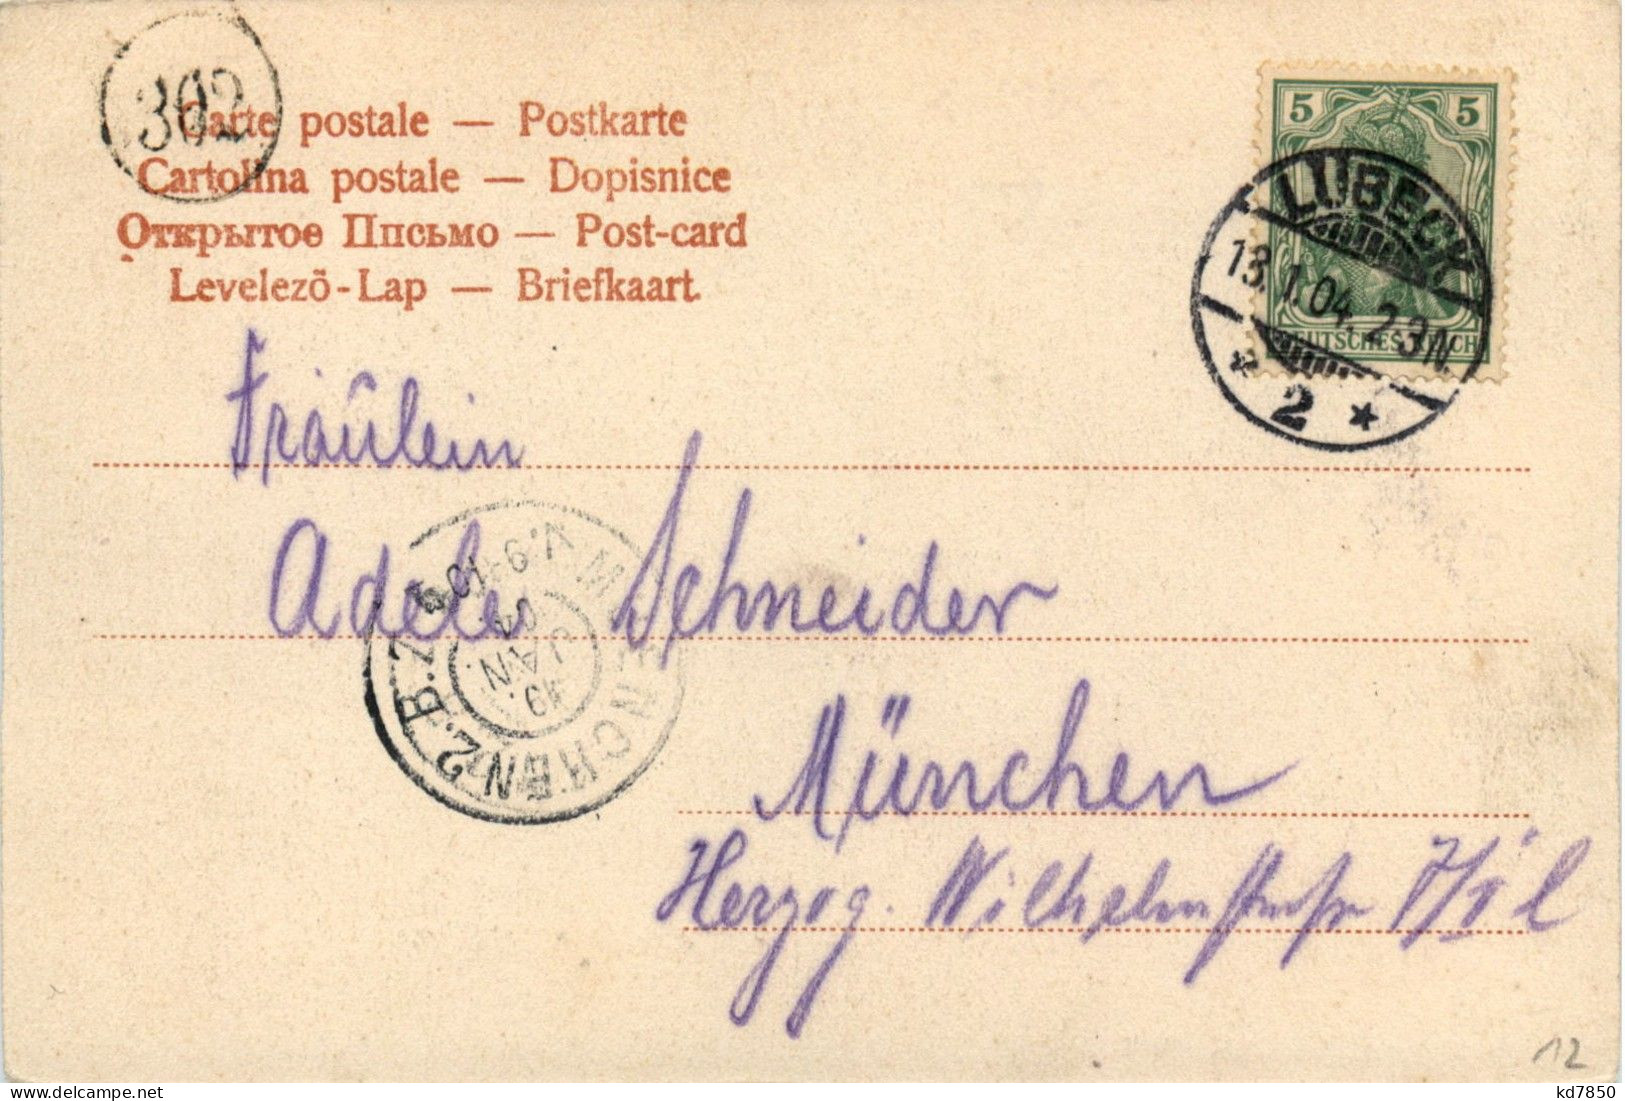 302
Carte postale — Postkarte
Cartolina postale — Dopisnice
Открытое Письмо — Post-card
Levelező - Lap — Briefkaart.
5 5
DEUTSCHES REICH
LÜBECK
13.1.04. 2-3N.
* 2 *
Fräulein
Adele Schneider
MUENCHEN 2. B.Z.
V. 9-10
JAN.
04
München
Herzog. Wilhelmstraße
12
kd7850